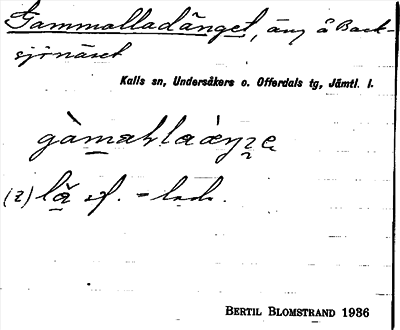 Gammalladänget, äng å Back-
sjönäset
Kalls sn, Undersåkers o. Offerdals tg, Jämtl. l.
(2) lå sf. = lada.
BERTIL BLOMSTRAND 1936